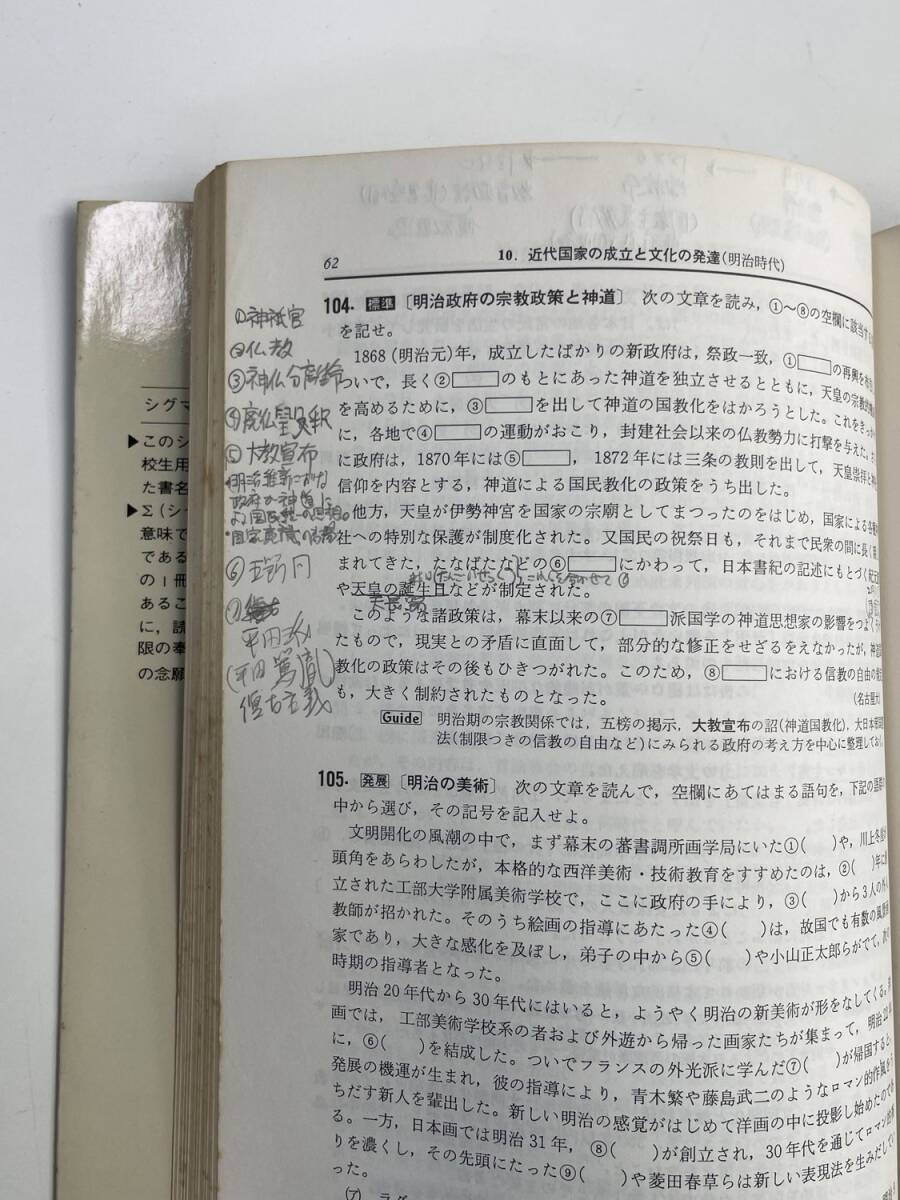 62
10. 近代国家の成立と文化の発達(明治時代)
104. 標準 〔明治政府の宗教政策と神道〕 次の文章を読み，①〜⑧の空欄に該当する
を記せ。
1868 (明治元)年，成立したばかりの新政府は，祭政一致，①□の再興を
ついで，長く②□のもとにあった神道を独立させるとともに，天皇の宗教的
を高めるために，③□を出して神道の国教化をはかろうとした。これをきっか
に，各地で④□の運動がおこり，封建社会以来の仏教勢力に打撃を与えた。
に政府は，1870年には⑤□，1872年には三条の教則を出して，天皇崇拝と
信仰を内容とする，神道による国民教化の政策をうち出した。
他方，天皇が伊勢神宮を国家の宗廟としてまつったのをはじめ，国家による
社への特別な保護が制度化された。又国民の祝祭日も，それまで民衆の間に長く
まれてきた，たなばたなどの⑥□にかわって，日本書紀の記述にもとづく紀元
や天皇の誕生日などが制定された。
このような諸政策は，幕末以来の⑦□派国学の神道思想家の影響をつよく
たもので，現実との矛盾に直面して，部分的な修正をせざるをえなかったが，神道
教化の政策はその後もひきつがれた。このため，⑧□における信教の自由の
も，大きく制約されたものとなった。
(名古屋大)
Guide 明治期の宗教関係では，五榜の掲示，大教宣布の詔(神道国教化)，大日本帝国憲
法(制限つきの信教の自由など)にみられる政府の考え方を中心に整理しておく
105. 発展 〔明治の美術〕 次の文章を読んで，空欄にあてはまる語句を，下記の語群の
中から選び，その記号を記入せよ。
文明開化の風潮の中で，まず幕末の蕃書調所画学局にいた①( )や，川上冬崖
頭角をあらわしたが，本格的な西洋美術・技術教育をすすめたのは，②( )年に
立された工部大学附属美術学校で，ここに政府の手により，③( )から3人の外
教師が招かれた。そのうち絵画の指導にあたった④( )は，故国でも有数の風景
家であり，大きな感化を及ぼし，弟子の中から⑤( )や小山正太郎らがでて，次
時期の指導者となった。
明治20年代から30年代にはいると，ようやく明治の新美術が形をなしてくる。
画では，工部美術学校系の者および外遊から帰った画家たちが集まって，明治22
に，⑥( )を結成した。ついでフランスの外光派に学んだ⑦( )が帰国すると
発展の機運が生まれ，彼の指導により，青木繁や藤島武二のようなロマン的作風を
ちだす新人を輩出した。新しい明治の感覚がはじめて洋画の中に投影し始めたので
る。一方，日本画では明治31年，⑧( )が創立され，30年代を通じてロマン的
りを濃くし，その先頭にたった⑨( )や菱田春草らは新しい表現法を生みだして
った。
①神祇官
②仏教
③神仏分離令
④廃仏毀釈
⑤大教宣布
明治維新における
政府が神道に
⑥五節句
⑦
平田
(平田篤胤)
復古主義
天長節
シグマ
▶このシ
校生用
た書名
▶Σ(シ
意味で
である
の1冊
あるこ
に，読
限の奉
の念願